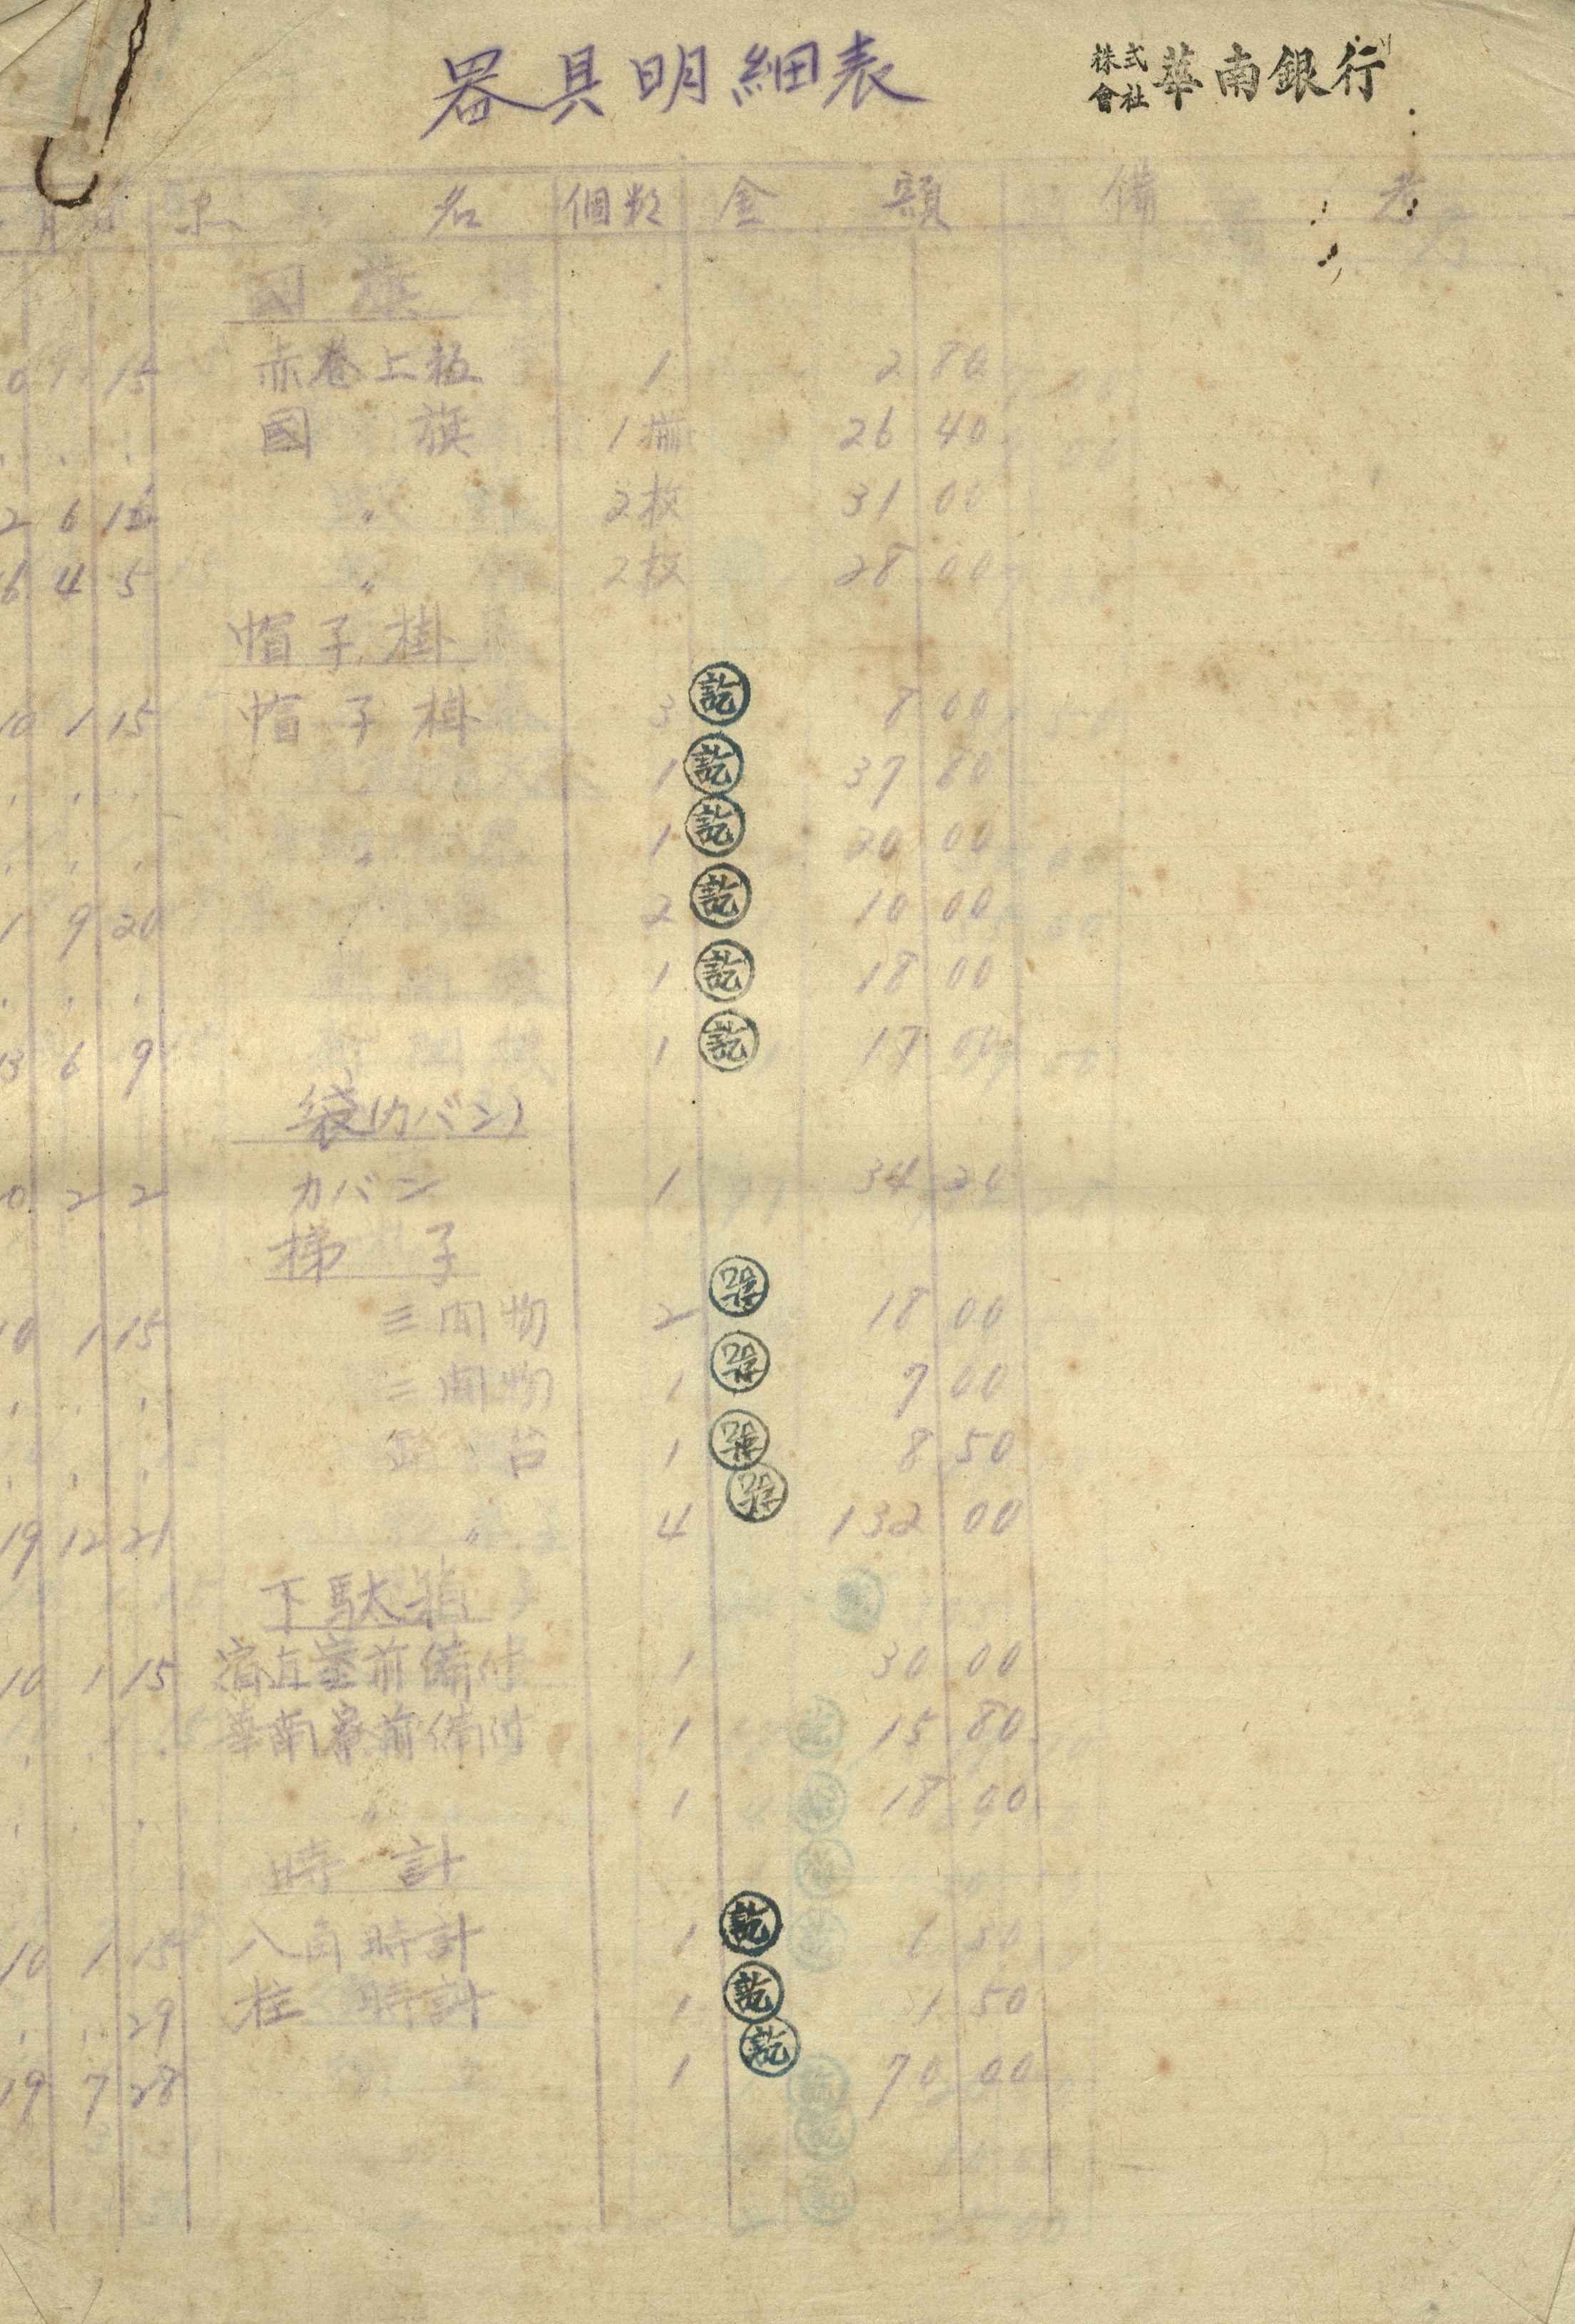 器具明細表
株式會社 華南銀行
月 日 品 名 個數 金 額 備 考
國旗
0 9 15 赤卷上板 1 2 80
國旗 1揃 26 40
2 6 12 〃 2枚 31 00
6 4 5 〃 2枚 28 00
帽子掛
10 1 15 帽子掛 3 訖 8 00
. . . 1 訖 37 80
. . . 〃 1 訖 20 00
1 9 20 2 訖 10 00
. . . 1 訖 18 00
13 6 9 1 訖 17 00
袋(カバン)
0 2 2 カバン 1 34 20
梯子
10 1 15 三間物 2 18 00
. . . 二間物 1 7 00
. . . 台 1 8 50
19 12 21 〃 4 132 00
下駄箱
10 1 15 宿直室前備付 1 30 00
. . . 華南寮前備付 1 15 80
. . . 〃 1 18 00
時計
10 1 15 八角時計 1 訖 6 50
. . 29 柱時計 1 訖 51 50
19 7 28 1 訖 70 00